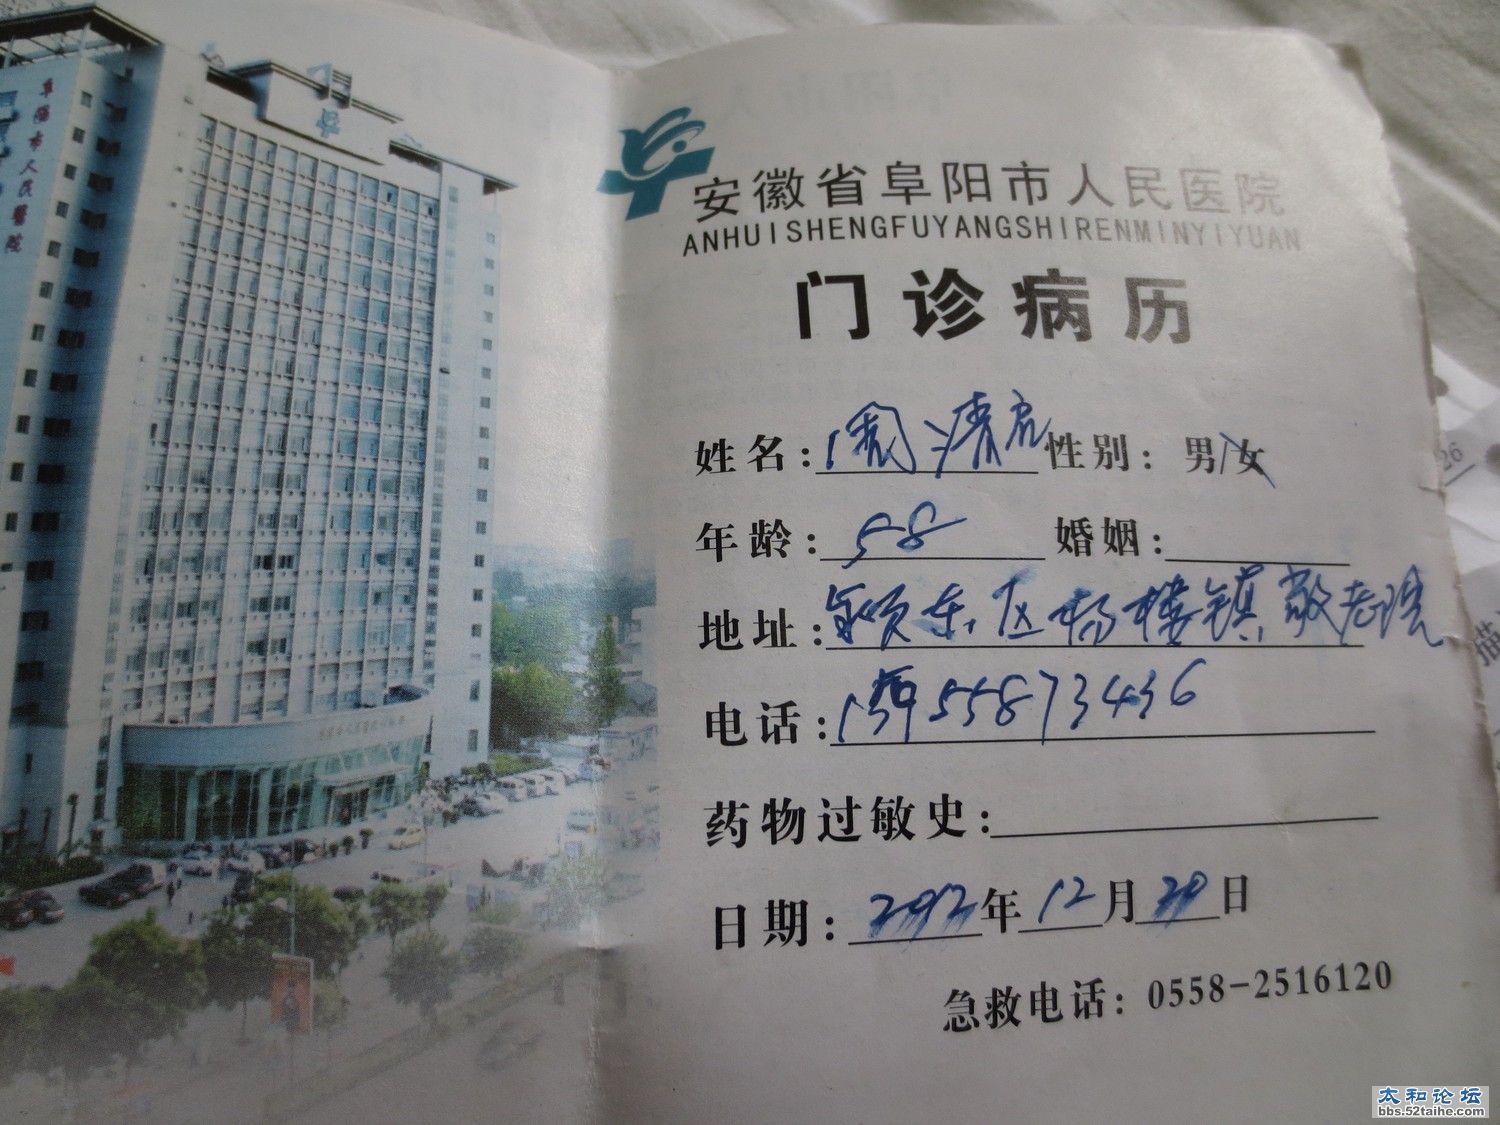 阜陽市人民醫院
安徽省阜阳市人民医院
ANHUISHENGFUYANGSHIRENMINYIYUAN
门诊病历
姓名: 性别: 男/女
年龄: 58 婚姻:
地址: 颍东区杨楼镇敬老院
电话: 55873436
药物过敏史:
日期: 2012年12月20日
急救电话: 0558-2516120
26
描
太和论坛
bbs.52taihe.com